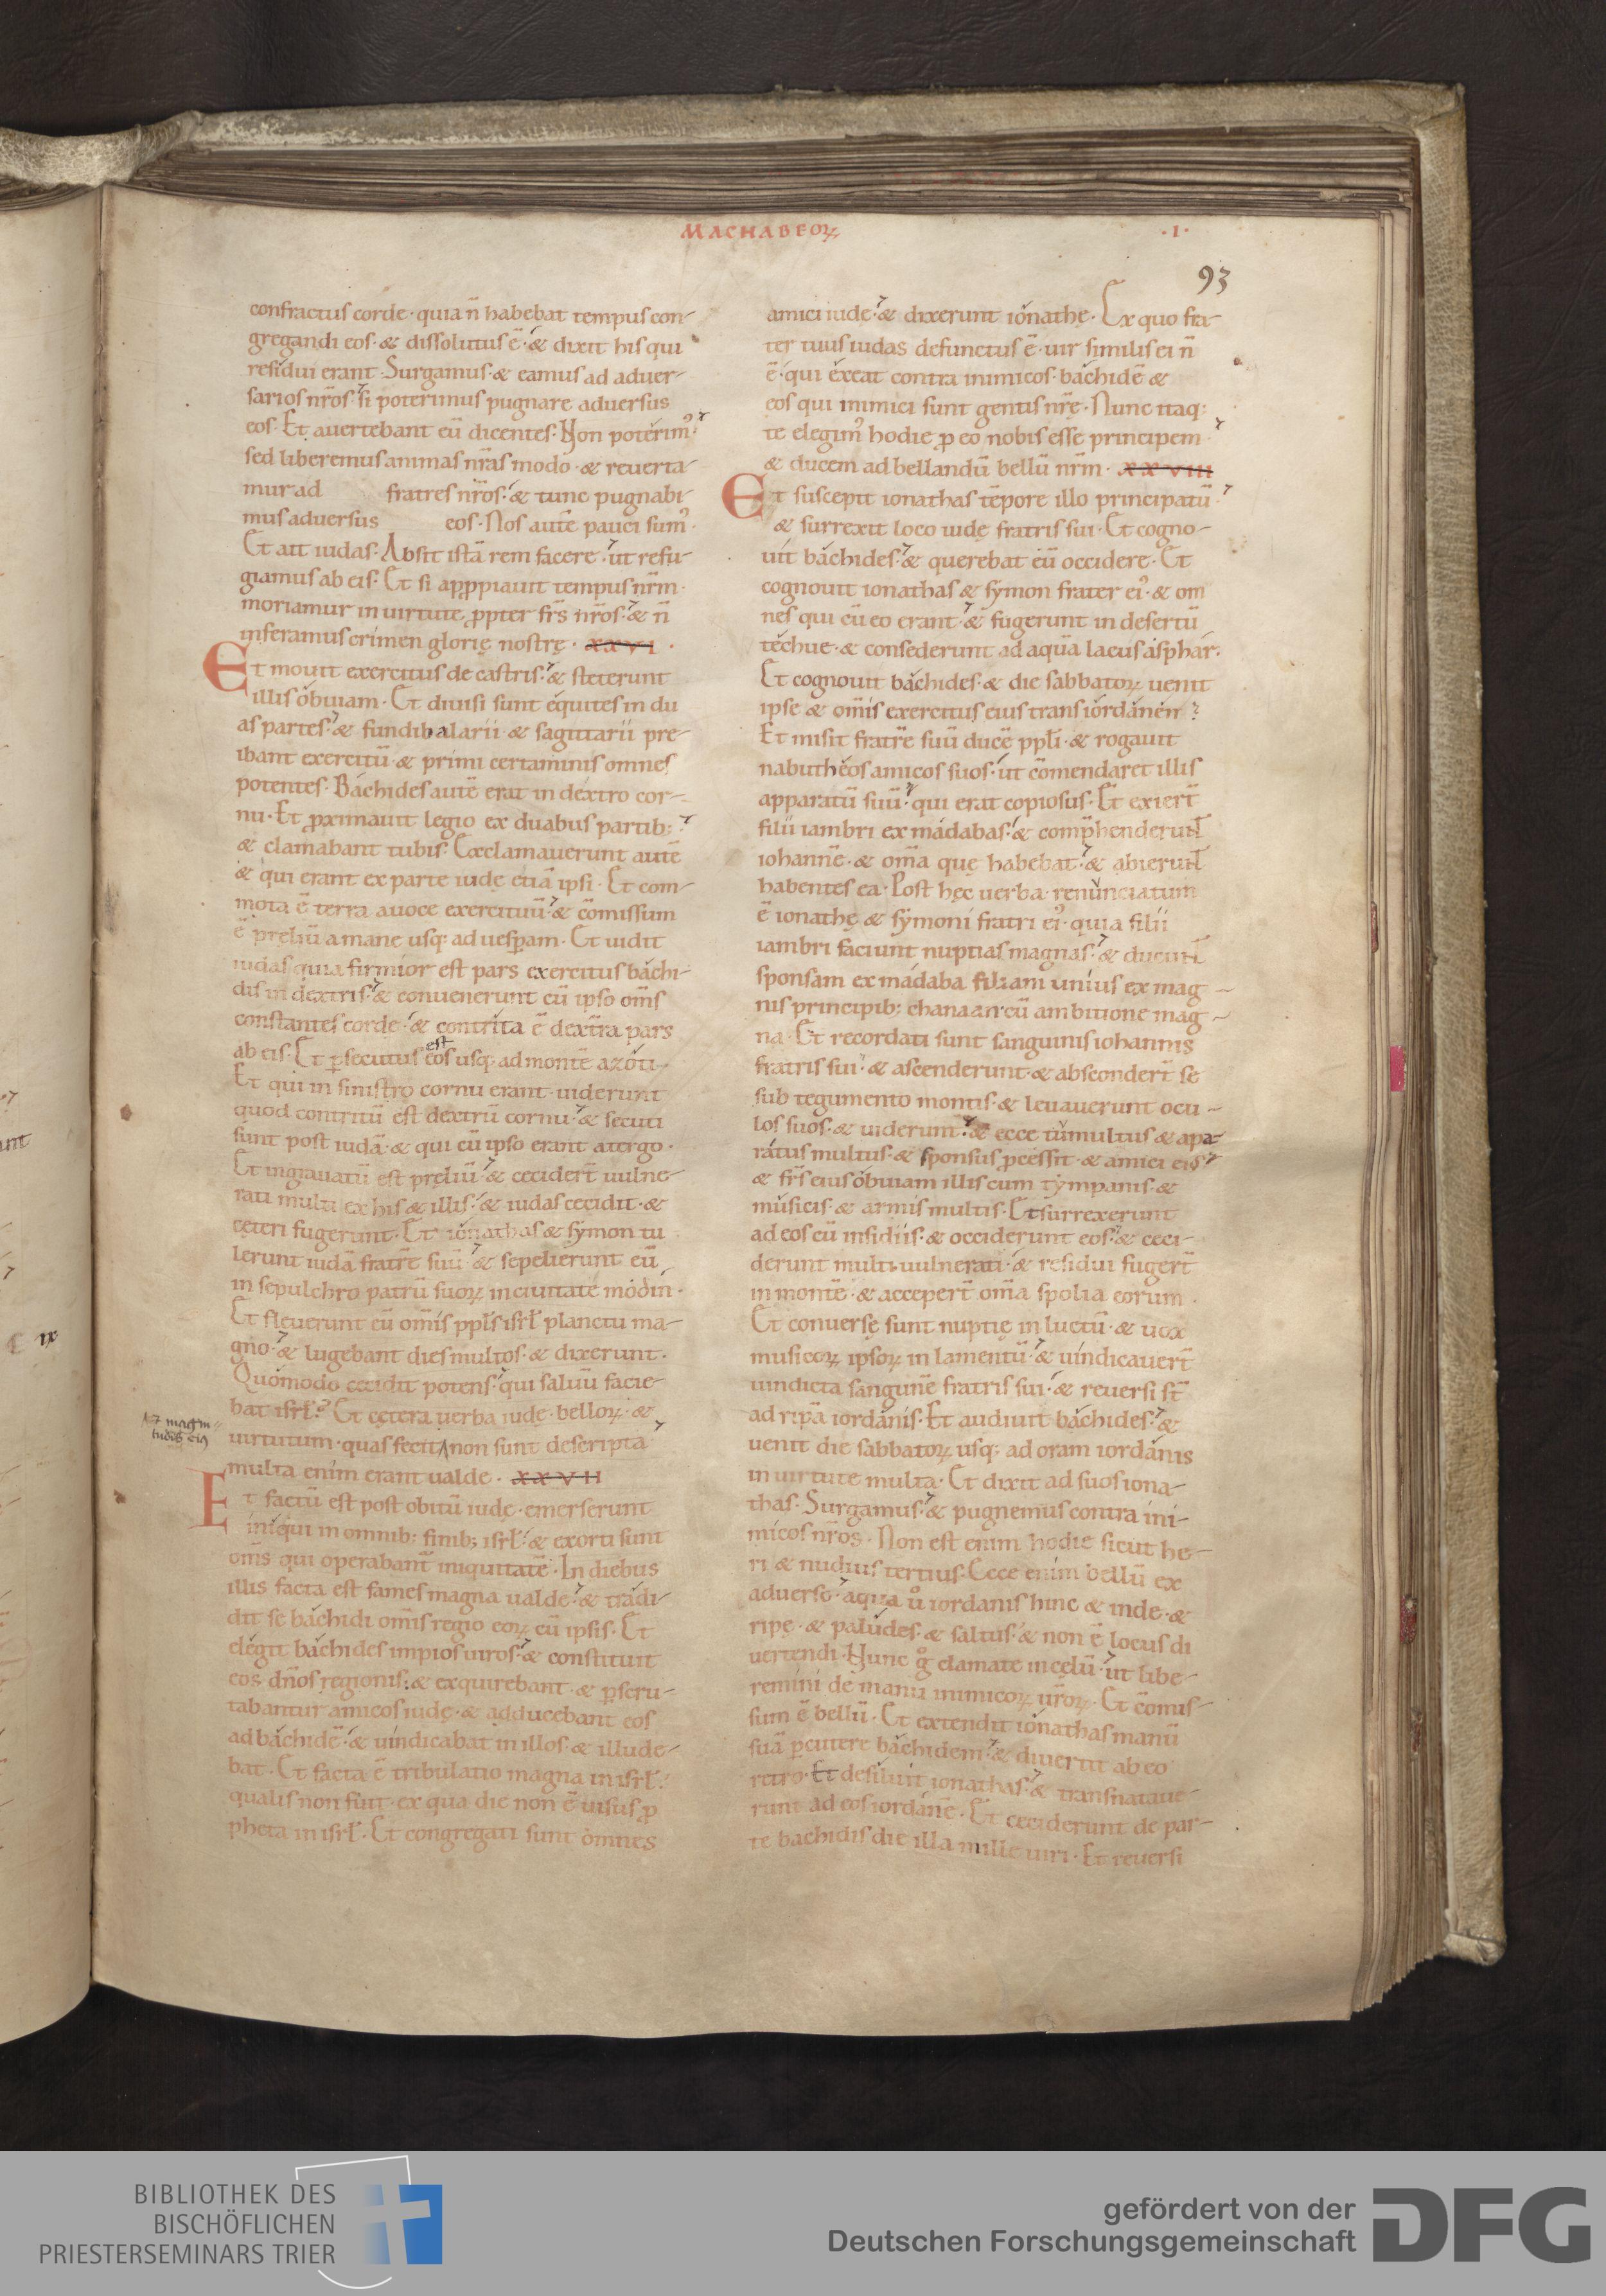 MACHABEOꝜ
·I·
93
confractus corde· quia n̄ habebat tempus con-
gregandi eos· & dissolutus ē· & dixit his qui
residui erant· Surgamus· & eamus ad aduer-
sarios nr̄os· si poterimus pugnare aduersus
eos· Et auertebant eū dicentes· Non poterim᾽·
sed liberemus animas nr̄as modo· & reuerta-
mur ad fratres nr̄os· & tunc pugnabi-
mus aduersus eos· Nos autē pauci sum᾽·
Et ait iudas· Absit istā rem facere· ut refu-
giamus ab eis· Et si appropiauit tempus nr̄m·
moriamur in uirtute ꝓpter fr̄s nr̄os· & n̄
inferamus crimen glorię nostrę· XXVI·
Et mouit exercitus de castris· & steterunt
illis obuiam· Et diuisi sunt equites in du
as partes· & fundibalarii & sagittarii pre-
ibant exercitū· & primi certaminis omnes
potentes· Bachides autē erat in dextro cor-
nu· Et ꝓximauit legio ex duabus partib;
& clamabant tubis· Exclamauerunt autē
& qui erant ex parte iudę etiā ipsi· Et com-
mota ē terra a uoce exercituū· & cōmissum
ē pręliū a mane usq; ad uesꝑam· Et uidit
iudas quia firmior est pars exercitus bachi-
dis in dextris· & conuenerunt cū ipso om̄s
constantes corde· & contrita ē dextra pars
ab eis· Et ꝑsecutus est eos usq; ad montē azoti·
Et qui in sinistro cornu erant· uiderunt
quod contritū est dextrū cornu· & secuti
sunt post iudā· & qui cū ipso erant a tergo·
Et ingrauatū est pręliū· & cecider̄t uulne-
rati multi ex his & illis· & iudas cecidit· &
ceteri fugerunt· Et ionathas & symon tu
lerunt iudā fratrē suū· & sepelierunt eū
in sepulchro patrū suoꝝ in ciuitate modin·
Et fleuerunt eū om̄is ppl̄s isrl̄ planctu ma-
gno· & lugebant dies multos· & dixerunt·
Quomodo cecidit potens· qui saluū facie-
bat isrl̄? Et cętera uerba iudę· belloꝝ· &
uirtutum· quas fecit non sunt descripta
& magni-
tudīs ei᾽
multa enim erant ualde· XXVII
Et factū est post obitū iudę· emerserunt
iniqui in omnib; finib; isrl̄· & exorti sunt
om̄s qui operabant᷑ iniquitatē· In diebus
illis facta est fames magna ualde· & tradi-
dit se bachidi om̄is regio eoꝝ cū ipsis· Et
elegit bachides impios uiros· & constituit
eos dn̄os regionis· & exquirebant & ꝑscru-
tabantur amicos iudę· & adducebant eos
ad bachidē· & uindicabat in illos· & illude-
bat· Et facta ē tribulatio magna in isrl̄·
qualis non fuit· ex qua die non ē uisus ꝓ
pheta in isrl̄· Et congregati sunt omnes
amici iudę· & dixerunt ionathę· Ex quo fra-
ter tuus iudas defunctus ē· uir similis ei n̄
ē· qui exeat contra inimicos· bachidē &
eos qui inimici sunt gentis nr̄ę· Nunc itaq;
te elegim᾽ hodie ꝓ eo nobis esse principem
& ducem ad bellandū bellū nr̄m· XXVIII
Et suscepit ionathas tēpore illo principatū·
& surrexit loco iudę fratris sui· Et cogno-
uit bachides· & querebat eū occidere· Et
cognouit ionathas & symon frater ei᾽· & om
nes qui cū eo erant· & fugerunt in desertū
techue· & consederunt ad aquā lacus asphar·
Et cognouit bachides· & die sabbatoꝝ uenit
ipse & om̄is exercitus eius trans iordanen·
Et misit fratrē suū ducē ppl̄i· & rogauit
nabutheos amicos suos· ut cōmendaret illis
apparatū suū· qui erat copiosus· Et exier̄t
filii iambri ex madabas· & comp̄henderūt
iohannē· & om̄a quę habebat· & abierūt
habentes ea· Post hęc uerba· renunciatum
ē ionathę & symoni fratri ei᾽· quia filii
iambri faciunt nuptias magnas· & ducunt
sponsam ex madaba filiam unius ex mag-
nis principib; chanaan cū ambitione mag-
na· Et recordati sunt sanguinis iohannis
fratris sui· & ascenderunt· & absconder̄t se
sub tegumento montis· & leuauerunt ocu-
los suos· & uiderunt· & ecce tumultus & apa-
ratus multus· & sponsus ꝓcessit· & amici ei᾽
& fr̄s eius obuiam illis cum tympanis· &
musicis· & armis multis· Et surrexerunt
ad eos cū insidiis· & occiderunt eos· & ceci-
derunt multi uulnerati· & residui fuger̄t
in montē· & acceper̄t om̄a spolia eorum·
Et conuersę sunt nuptię in luctū· & uox
musicoꝝ ipsoꝝ in lamentū· & uindicauer̄t
uindicta sanguinē fratris sui· & reuersi st̄
ad ripā iordanis· Et audiuit bachides· &
uenit die sabbatoꝝ usq; ad oram iordanis
in uirtute multa· Et dixit ad suos iona-
thas· Surgamus· & pugnemus contra ini-
micos nr̄os· Non est enim hodie sicut he-
ri & nudius tertius· Ecce enim bellū ex
aduerso· aqua ů iordanis hinc & inde· &
ripę· & paludes· & saltus· & non ē locus di
uertendi· Nunc g̊ clamate in cęlū· ut libe-
remini de manu inimicoꝝ ur̄oꝝ· Et cōmis-
sum ē bellū· Et extendit ionathas manū
suā ꝑcutere bachidem· & diuertit ab eo
retro· Et desiluit ionathas· & transnataue-
runt ad eos iordanē· Et ceciderunt de par-
te bachidis die illa mille uiri· Et reuersi
ix
BIBLIOTHEK DES
BISCHÖFLICHEN
PRIESTERSEMINARS TRIER
gefördert von der
Deutschen Forschungsgemeinschaft
DFG